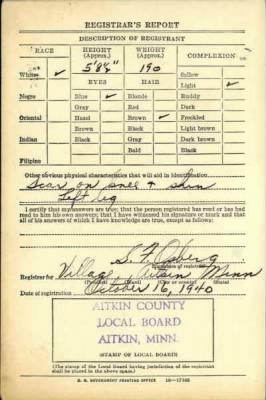 REGISTRAR'S REPORT
DESCRIPTION OF REGISTRANT
RACE
HEIGHT
(Approx.)
WEIGHT
(Approx.)
COMPLEXION
5'8½"
190
White ✓
EYES
HAIR
Sallow
Light ✓
Negro
Blue ✓
Blonde
Ruddy
Gray
Red
Dark
Oriental
Hazel
Brown ✓
Freckled
Brown
Black
Light brown
Indian
Black
Gray
Dark brown
Bald
Black
Filipino
Other obvious physical characteristics that will aid in identification
Scar on knee + shin
Left leg
I certify that my answers are true; that the person registered has read or has had
read to him his own answers; that I have witnessed his signature or mark and that
all of his answers of which I have knowledge are true, except as follows:
(Signature of registrar)
Registrar for Village Aitkin Minn
(Precinct)
(State)
Date of registration October 16, 1940
AITKIN COUNTY
LOCAL BOARD
AITKIN, MINN.
(STAMP OF LOCAL BOARD)
(The stamp of the Local Board having jurisdiction of the registrant
shall be placed in the above space.)
U. S. GOVERNMENT PRINTING OFFICE
16—17105